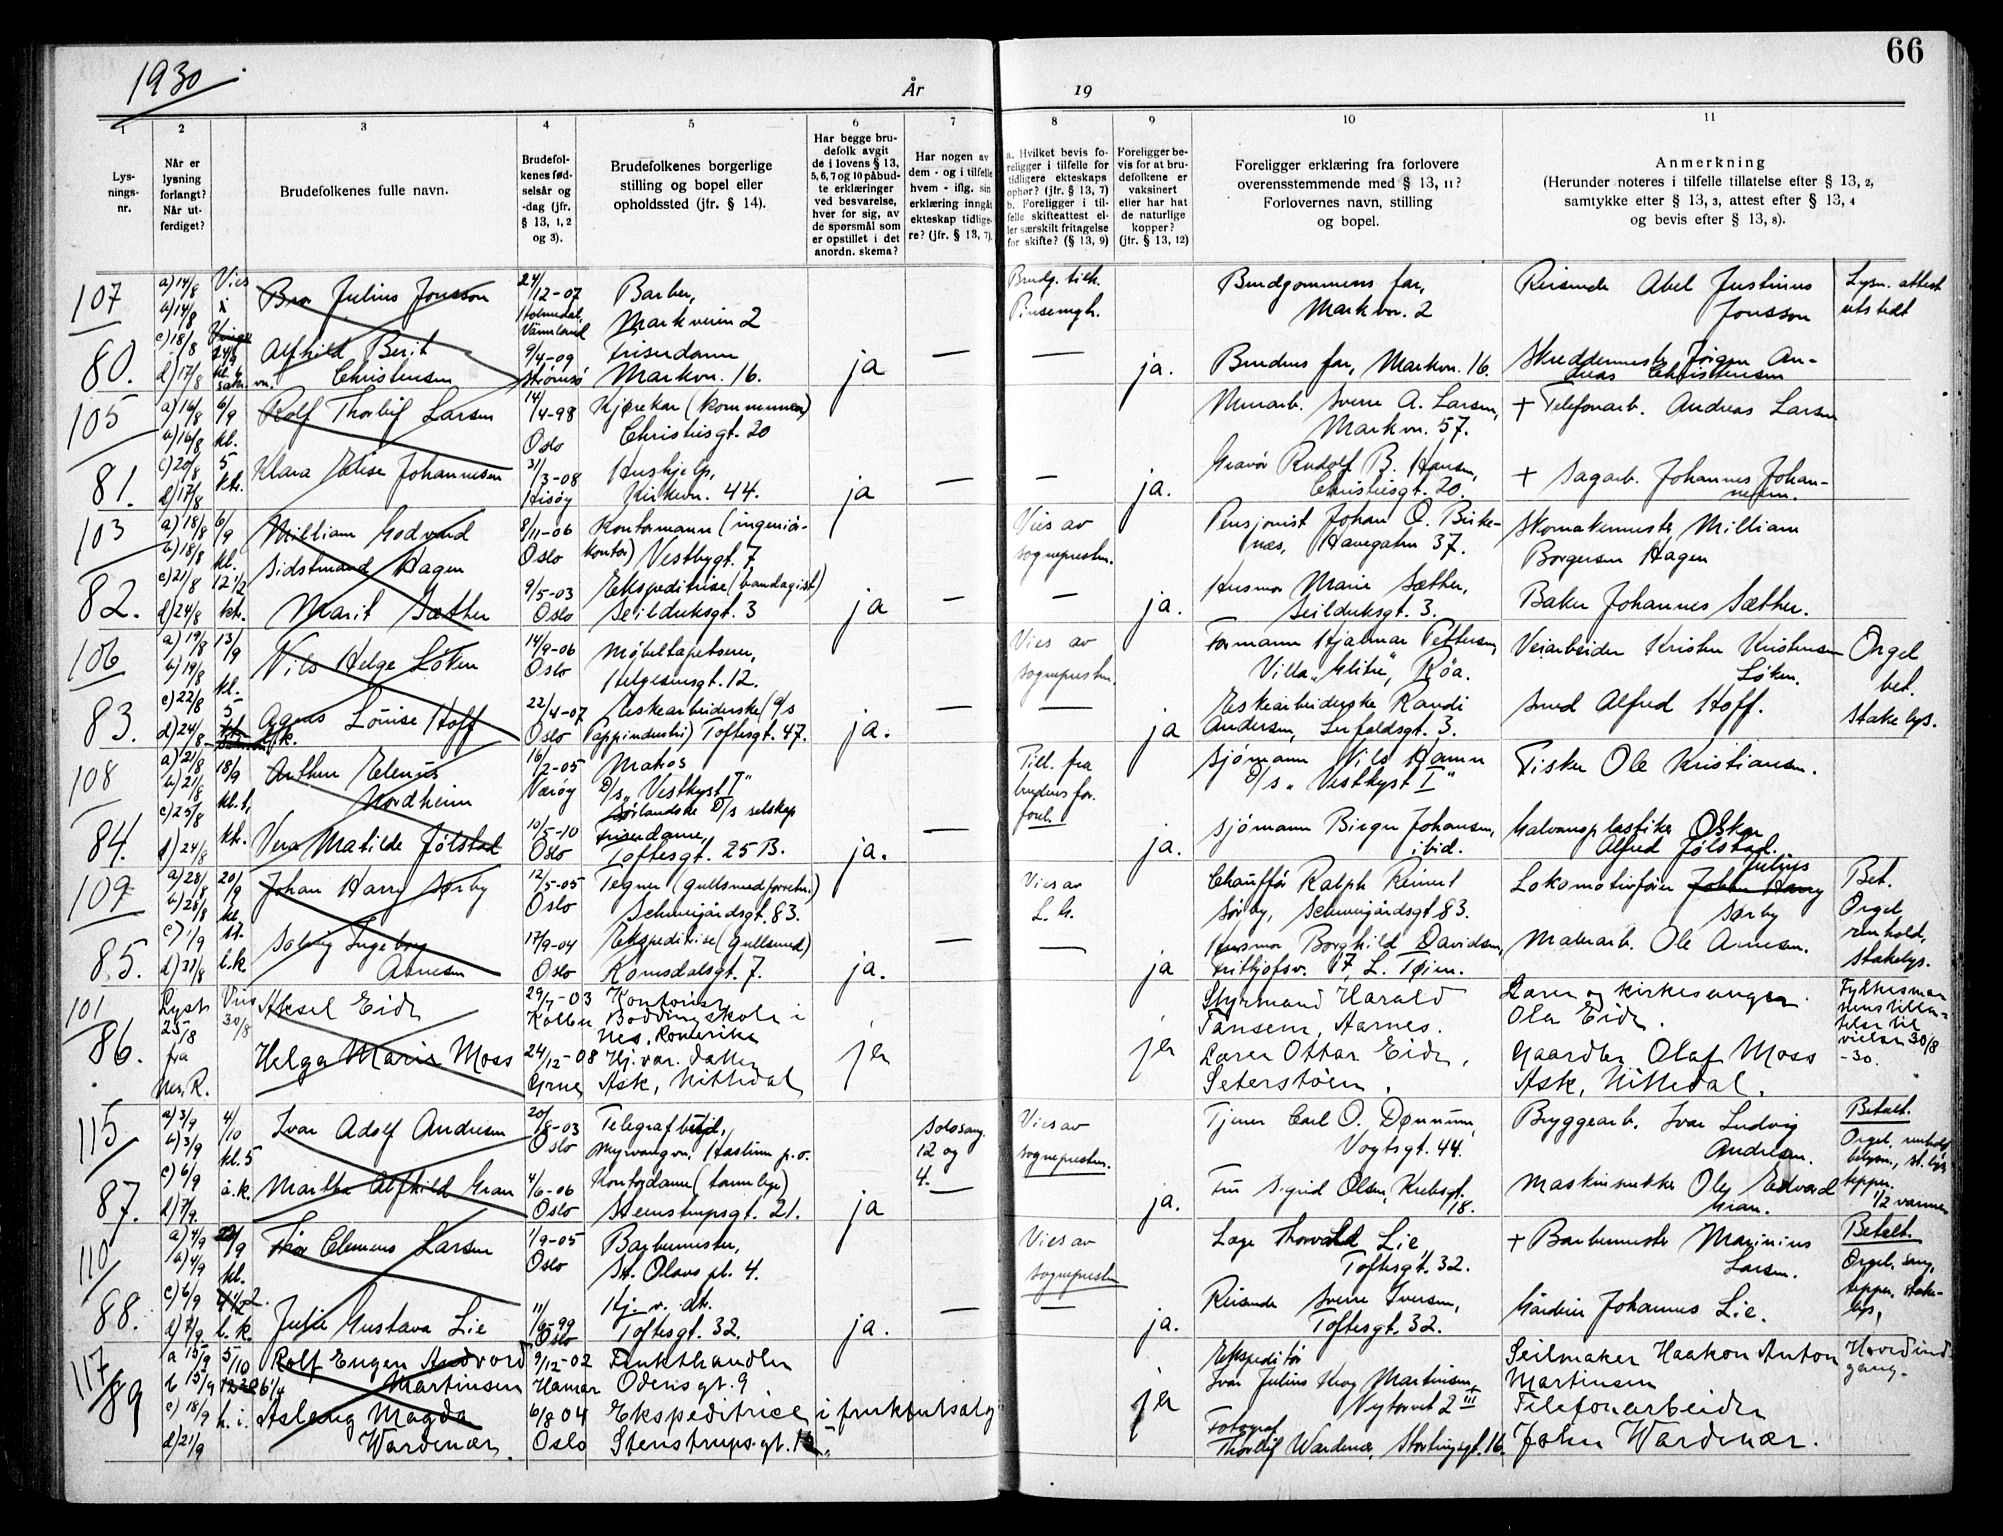 1930
66
År
19
1
2
3
4
5
6
7
8
9
10
11
Lys-
nings-
nr.
Når er
lysning
forlangt?
Når ut-
ferdiget?
Brudefolkenes fulle navn.
Brudefol-
kenes fød-
selsår og
-dag (jfr.
§ 13, 1, 2
og 3).
Brudefolkenes borgerlige
stilling og bopel eller
opholdssted (jfr. § 14).
Har begge bru-
defolk avgit
de i lovens § 13,
5, 6, 7 og 10 påbud-
te erklæringer
ved besvarelse,
hver for sig, av
de spørsmål som
er opstillet i det
anordn. skema?
Har nogen av
dem - og i tilfelle
hvem - iflg. sin
erklæring inngått
ekteskap tidlige-
re? (jfr. § 13, 7).
a. Hvilket bevis fo-
religger i tilfelle for
tidligere ekteskaps
ophør? (jfr. § 13, 7)
b. Foreligger i til-
felle skifteattest el-
ler særskilt fritagelse
for skifte? (§ 13, 9)
Foreligger be-
vis for at bru-
defolkene er
vaksinert
eller har hat
de naturlige
kopper?
(jfr. § 13, 12)
Foreligger erklæring fra forlovere
overensstemmende med § 13, 11?
Forlovernes navn, stilling
og bopel.
Anmerkning
(Herunder noteres i tilfelle tillatelse efter § 13, 2,
samtykke efter § 13, 3, attest efter § 13, 4
og bevis efter § 13, 8).
107
a) 14/8
b) 14/8
c) 18/8
d) 17/8
Julius Jonsson
24/12-07
Barber,
Markveien 2
Brudg. tilh.
Pinsemgh.
Brudgommens far,
Markvn. 2
Reisende Abel Justinus
Jonsson
Lysn. attest
utstedt
80.
Alfhild Berit
Christensen
9/4-09
Strømsø
Friserdame
Markvn. 16.
ja
—
—
ja.
Brudens far, Markvn. 16.
Skreddermester Jørgen An-
dreas Christensen
105
a) 16/8
b) 16/8
c) 20/8
d) 17/8
6/9
kl.
5
Rolf Thorleif Larsen
14/4-98
Oslo
Kjørekar (kommunen)
Christiesgt. 20
Murarb. Sverre A. Larsen,
Markvn. 57.
+ Telefonarb. Andreas Larsen
81.
Klara Elise Johannesen
31/3-08
Hisøy
Hushjelp,
Kirkevn. 44.
ja
—
—
ja.
Gravør Rudolf B. Hansen,
Christiesgt. 20.
+ Sagarb. Johannes Johan-
nesen.
103
a) 18/8
b) 18/8
c) 21/8
d) 24/8
6/9
kl.
12 1/2
William Godvard
Sidstmand Hagen
8/11-06
Oslo
Kontormann (ingeniør-
kontor) Vestbygt. 7
Vies av
sognepresten.
Pensjonist Johan O. Birke-
næs, Havegaten 37.
Skomakermester William
Borgersen Hagen
82.
Marit Sæther
9/5-03
Oslo
Ekspeditrise (bandagist)
Seilduksgt. 3
ja
—
—
ja.
Husmor Marie Sæther,
Seilduksgt. 3.
Baker Johannes Sæther.
106
a) 19/8
b) 19/8
c) 22/8
d) 24/8
13/9
kl.
5
Nils Helge Løken
14/9-06
Oslo
Møbeltapetserer,
Helgesensgt. 12.
Vies av
sognepresten.
Formann Hjalmar Pettersen,
Villa „Glitre", Røa.
Veiarbeider Kristen Kristensen
Løken.
Orgel
bet.
Stakelys.
83.
Agnes Lovise Hoff
22/4-07
Oslo
Eskearbeiderske (9/s
Pappindustri) Toftesgt. 47.
ja.
—
—
ja
Eskearbeiderske Randi
Andersen, Leirfaldsgt. 3.
Smed Alfred Hoff.
108
a) 21/8
b) 21/8
c) 25/8
d) 24/8
18/9
Arthur Elenius
Nordheim
16/2-05
Værøy
Matros
D/s „Vestkyst I"
Sørlandske D/s selskap
Till. fra
brudens for.
forel.
Sjømann Nils Hamn
D/s „Vestkyst I"
Fisker Ole Kristiansen.
84.
Vera Matilde Jølstad
10/5-10
Oslo
Friserdame,
Toftesgt. 25 B.
ja.
—
ja.
Sjømann Birger Johansen,
ibid.
Galvanoplastiker Oskar
Alfred Jølstad.
109
a) 28/8
b) 28/8
c) 1/9
d) 31/8
20/9
kl.
Johan Harry Sørby
12/5-05
Oslo
Tegner (gullsmedforretn.)
Schweigårdsgt. 83.
Vies av
L. H.
Chauffør Ralph Reinert
Sørby, Schweigårdsgt. 83.
Lokomotivfører Johan Harry Julius
Sørby
Bet.
Orgel,
renhold,
stakelys.
85.
Solveig Ingeborg
Arnesen
17/9-04
Oslo
Ekspeditrise (gullsmed)
Romsdalsgt. 7.
ja.
—
—
ja
Husmor Borghild Davidsen,
Fritjofsv. 17, L. Tøien.
Malerarb. Ole Arnesen.
101
Lyst
25/8
fra
Nes, R.
Vies
30/8
Aksel Eide
29/7-03
Kontorist
Boddingskole i
Nes, Romerike
Styrmand Harald
Tansem, Aarnes.
Lærer og kirkesanger
Ola Eide.
Fylkesman-
nens tilla-
telse til
vielse 30/8
-30.
86.
Helga Marie Moss
24/12-08
Grue
Hj. vær. datter
Ask, Nittedal
ja
ja
Lærer Ottar Eide,
Seterstøen.
Gaardbr. Olaf Moss
Ask, Nittedal.
115
a) 3/9
b) 3/9
c) 6/9
d) 7/9
4/10
kl. 5
å. k.
Ivar Adolf Andresen
20/8-03
Oslo
Telegrafbud,
Myrvangvn. Haslum p. o.
Solosang.
12 og
4.
Vies av
sognepresten.
Tjener Carl O. Dønnum,
Vogtsgt. 44.
Bryggearb. Ivar Ludvig
Andresen.
Betalt.
Orgel, renhold,
belysn., st. lys
tepper.
1/2 varmen
87.
Martha Alfhild Gran
4/6-06
Oslo
Kontordame
Stenstrupsgt. 21.
ja
—
ja.
Fru Sigrid Olsen, Krebsgt.
18.
Maskinsmekker Ole Edvard
Gran.
110
a) 4/9
b) 4/9
c) 6/9
d) 7/9
kl.
Thor Clemens Larsen
1/9-05
Oslo
Barbermester,
St. Olavs pl. 4.
Vies av
sognepresten
Læge Thorvald Lie,
Toftesgt. 32.
+ Barbermester Marinius
Larsen.
Betalt.
Orgel, sang,
tepper, stake-
lys,
88.
Julie Gustava Lie
11/6-99
Oslo
Hj. v. dtr.
Toftesgt. 32.
ja.
—
—
ja.
Reisende Sverre Iversen,
Toftesgt. 32.
Gårdeier Johannes Lie.
117
a 15/9
b 15/9
c) 18/9
d) 21/9
5/10
Rolf Eugen Andvord
Martinsen
9/12-02
Hamar
Frukthandler
Odensgt. 9
Ekspeditør
Ivar Julius Krog Martinsen,
Nytorvet 2 III
Seilmaker Haakon Anton
Martinsen
Hovedind-
gang.
89
Aslaug Magda
Wardenær.
6/8 04
Oslo
Ekspeditrice i fruktutsalg
Stenstrupsgt. 15
ja
Fotograf
Thorleif Wardenær, Stortingsgt. 16.
Telefonarbeider
John Wardenær.